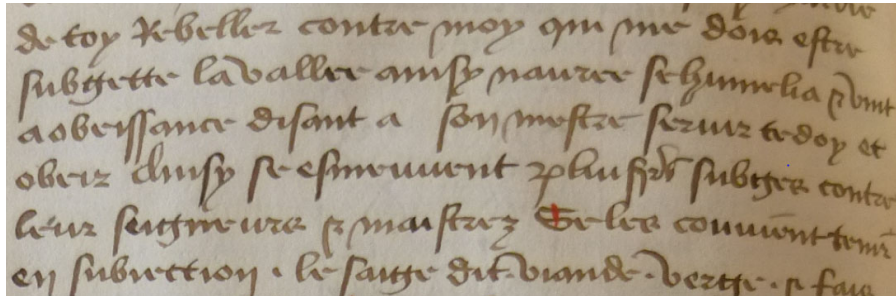 de toy Rebeller contre moy qui me dois estre
subgette la vallee ainsy nauree se humelia & vint
a obeissance disant a son mestre seruir te doy et
obeir Ainsy se esmeuuent plusrs subges contre
leur seigneurs & maistrez Se les conuient tenir
en subiection . le saige dit . viande . verge . & fais